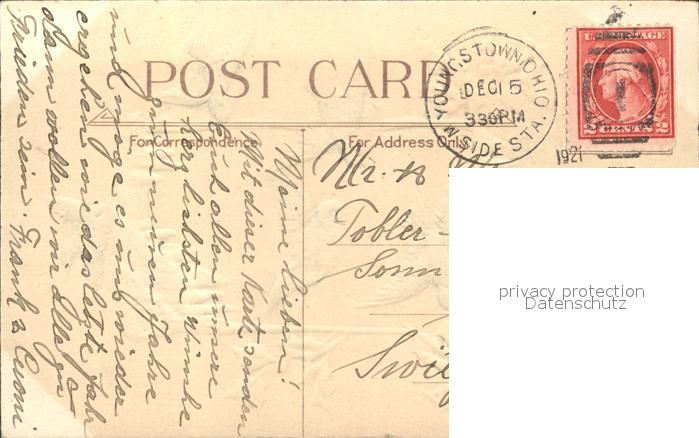 POST CARD
For Correspondence
For Address Only
YOUNGSTOWN, OHIO
DEC 15
330 PM
W SIDE STA.
1921
U.S. POSTAGE
2 CENTS 2
Meine Lieben!
Mit dieser Karte senden
Euch allen unsere
herzlichsten Wünsche
zum neuen Jahre
und möge es uns wieder
ergehen wie das letzte Jahr
dann wollen wir Alle zu-
frieden sein. Frank &
Mr. &
Tobler-
Sonn
privacy protection
Datenschutz